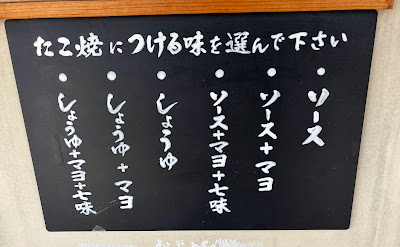 たこ焼につける味を選んで下さい
・ソース
・ソース+マヨ
・ソース+マヨ+七味
・しょうゆ
・しょうゆ+マヨ
・しょうゆ+マヨ+七味